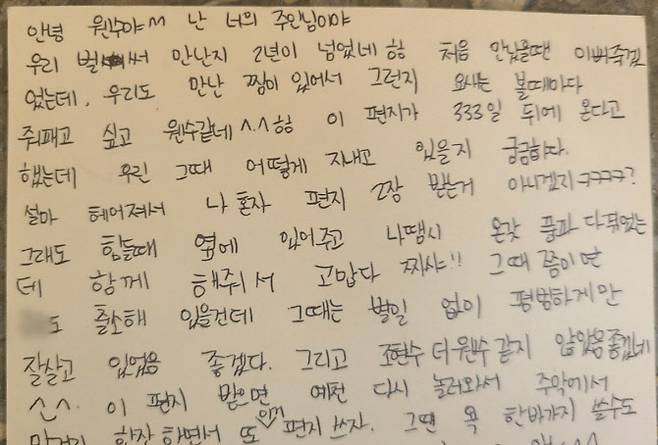 안녕 원수야^^ 난 너의 주인님이야
우리 벌써 만난지 2년이 넘었네 힝 처음 만났을땐 이뻐죽겠
었는데, 우리도 만난 짬이 있어서 그런지 요새는 볼때마다
줘패고 싶고 원수같네^.^ㅎㅎ 이 편지가 333일 뒤에 온다고
했는데 우린 그때 어떻게 지내고 있을지 궁금하다.
설마 헤어져서 나 혼자 편지 2장 받는거 아니겠지ㅋㅋㅋㅋ?
그래도 힘들때 옆에 있어주고 나땜시 온갖 풍파 다 겪었는
데 함께 해줘서 고맙다 짜샤!! 그때 쯤이면
도 출소해 있을건데 그때는 별일 없이 평범하게만
잘살고 있었음 좋겠다. 그리고 조현수 더 원수 같지 않았음 좋겠네
^.^. 이 편지 받으면 예전 다시 놀러와서 주막에서
한잔 하면서 또 같이 편지 쓰자. 그땐 욕 한바가지 쓸수도